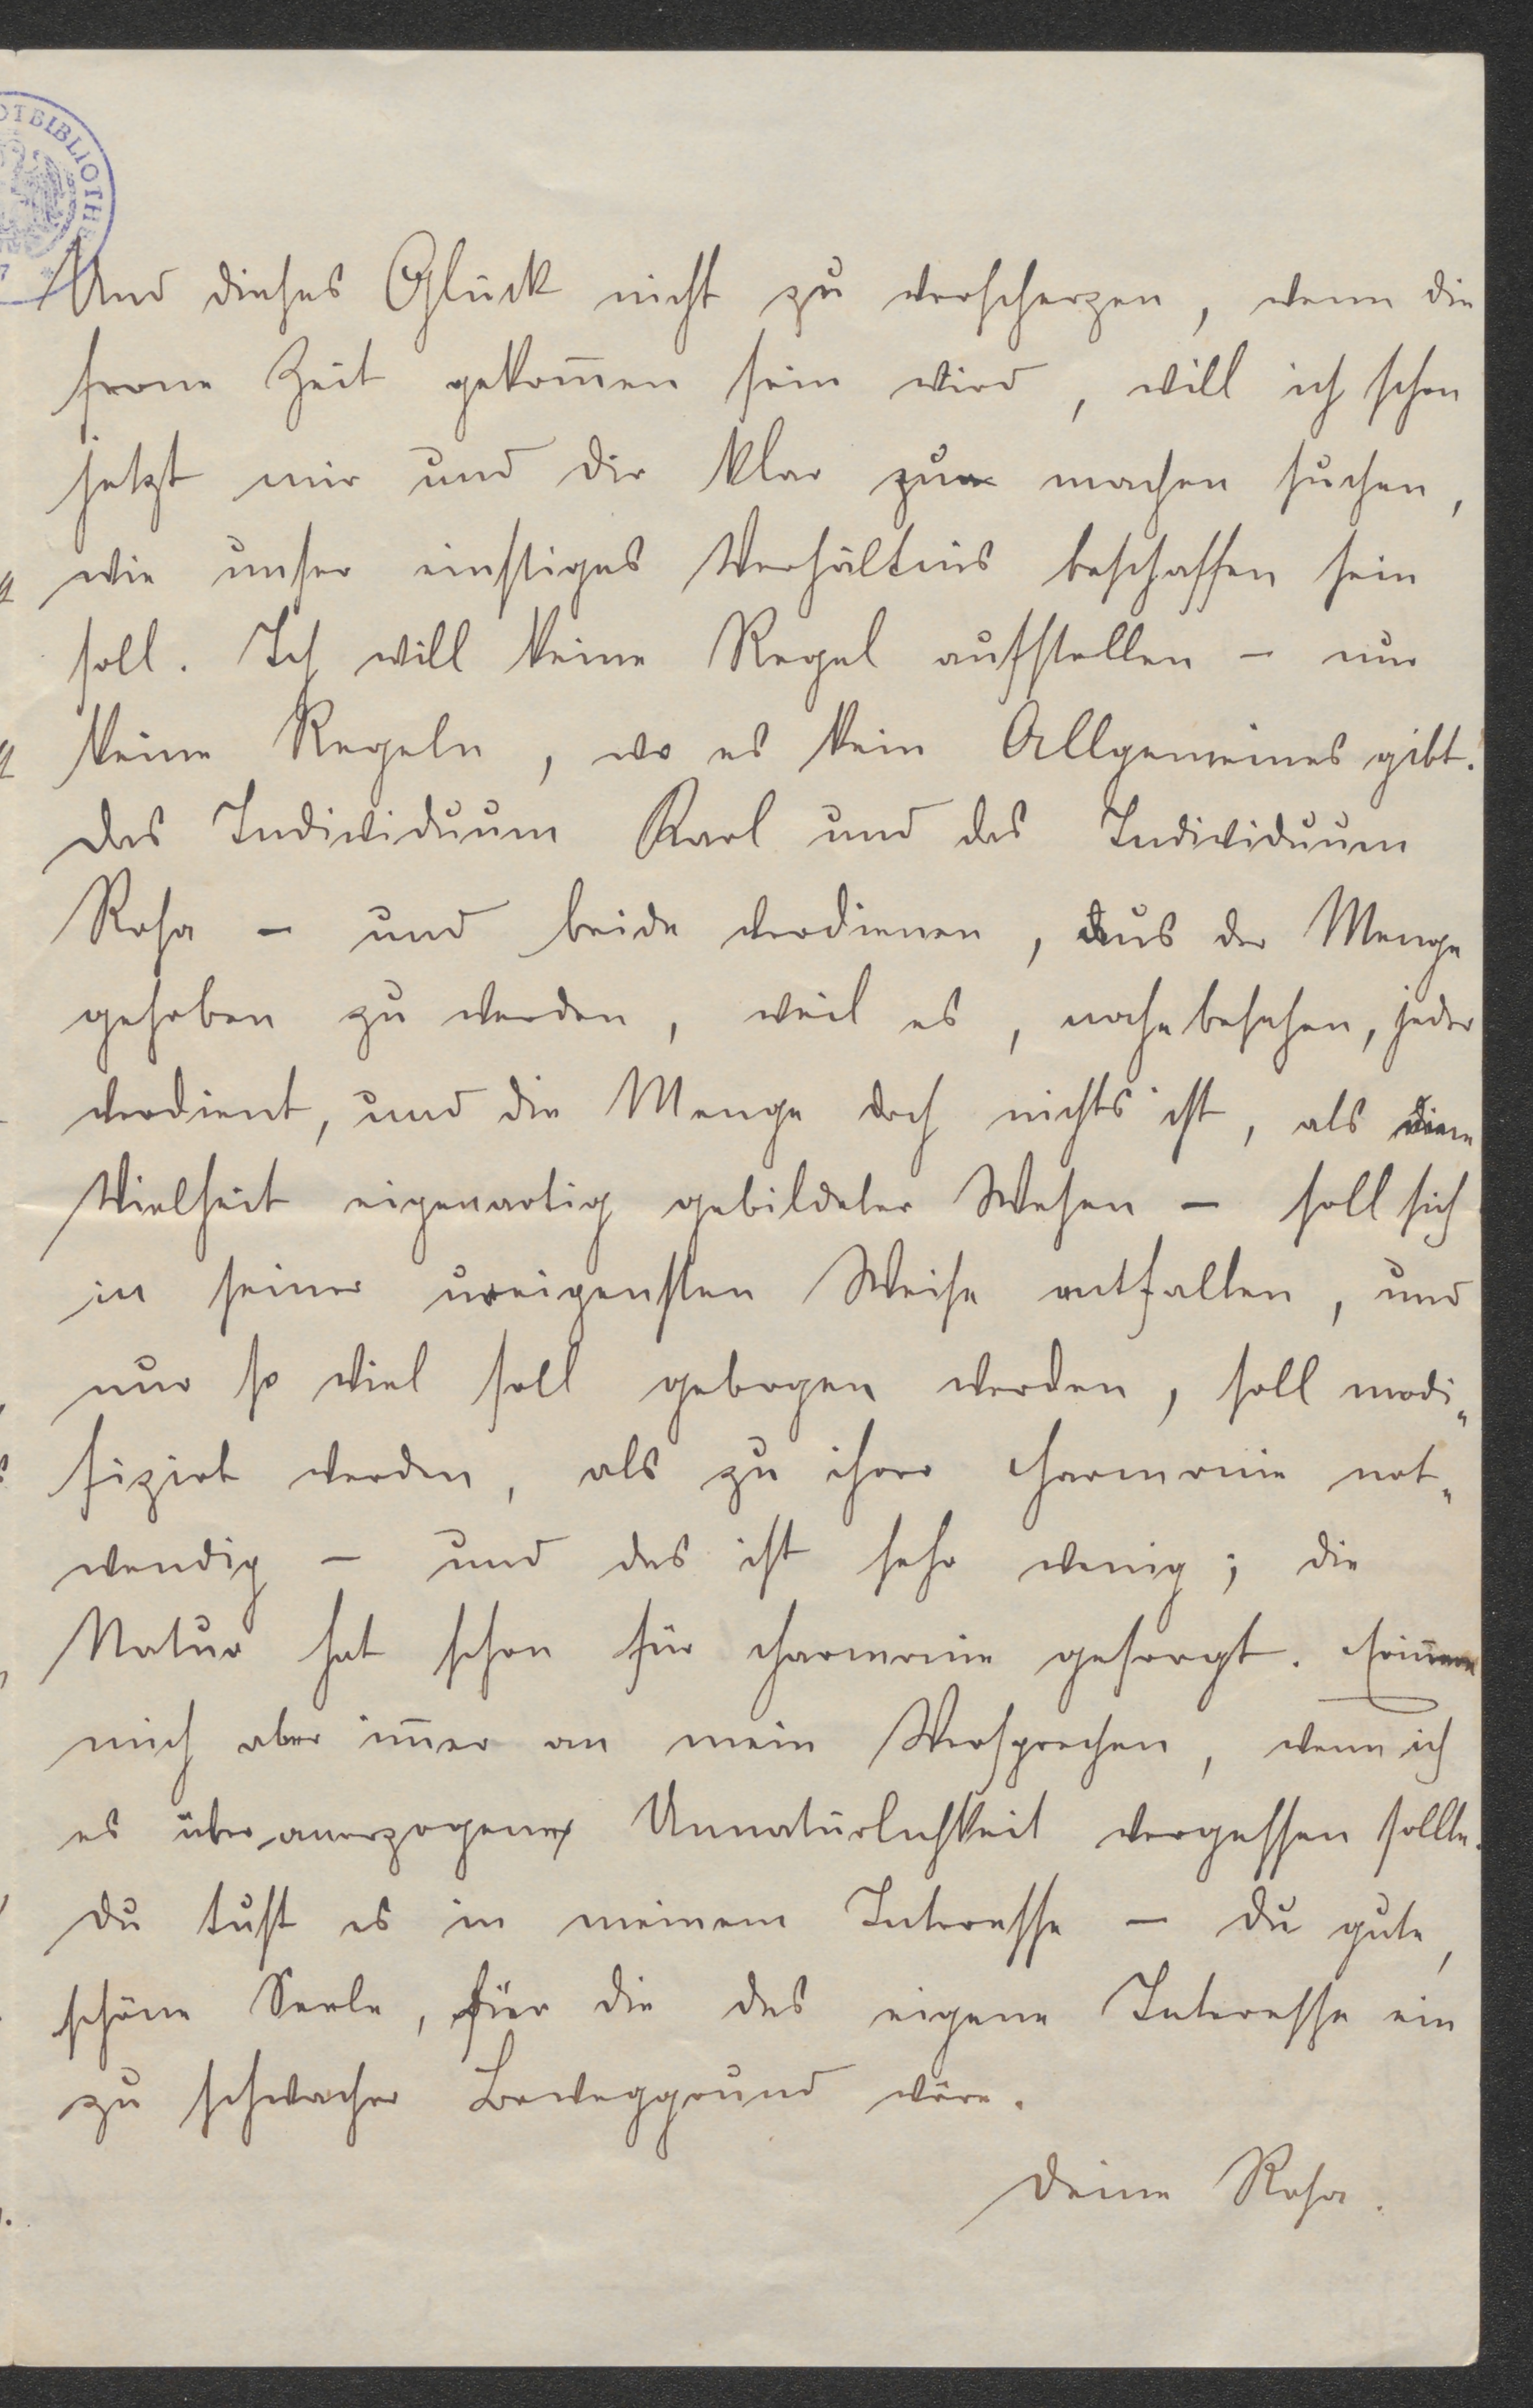 OTBIBLIOTH
7 *
Und dieses Glück nicht zu verscherzen, wenn die
ferne Zeit gekom̄en sein wird, will ich schon
jetzt mir und dir klar zu machen suchen,
wie unser einstiges Verhältnis beschaffen sein
soll. Ich will keine Regel aufstellen – nur
keine Regeln, wo es kein Allgemeines gibt.
Das Individuum Karl und das Individuum
Rosa – und beide verdienen, aus der Menge
gehoben zu werden, weil es, nahe besehen, jeder
verdient, und die Menge doch nichts ist, als eine
Vielheit eigenartig gebildeter Wesen – soll sich
in seiner ureigensten Weise entfalten, und
nur so viel soll gebogen werden, soll modi„
fizirt werden, als zu ihrer Harmonie not„
wendig – und das ist sehr wenig; die
Natur hat schon für Harmonie gesorgt. Erin̄ere
mich aber im̄er an mein Versprechen, wenn ich
es über anerzogener Unnatürlichkeit vergessen sollte.
Du tust es in meinem Interesse – Du gute,
schöne Seele, für die das eigene Interesse ein
zu schwacher Beweggrund wäre.
Deine Rosa.